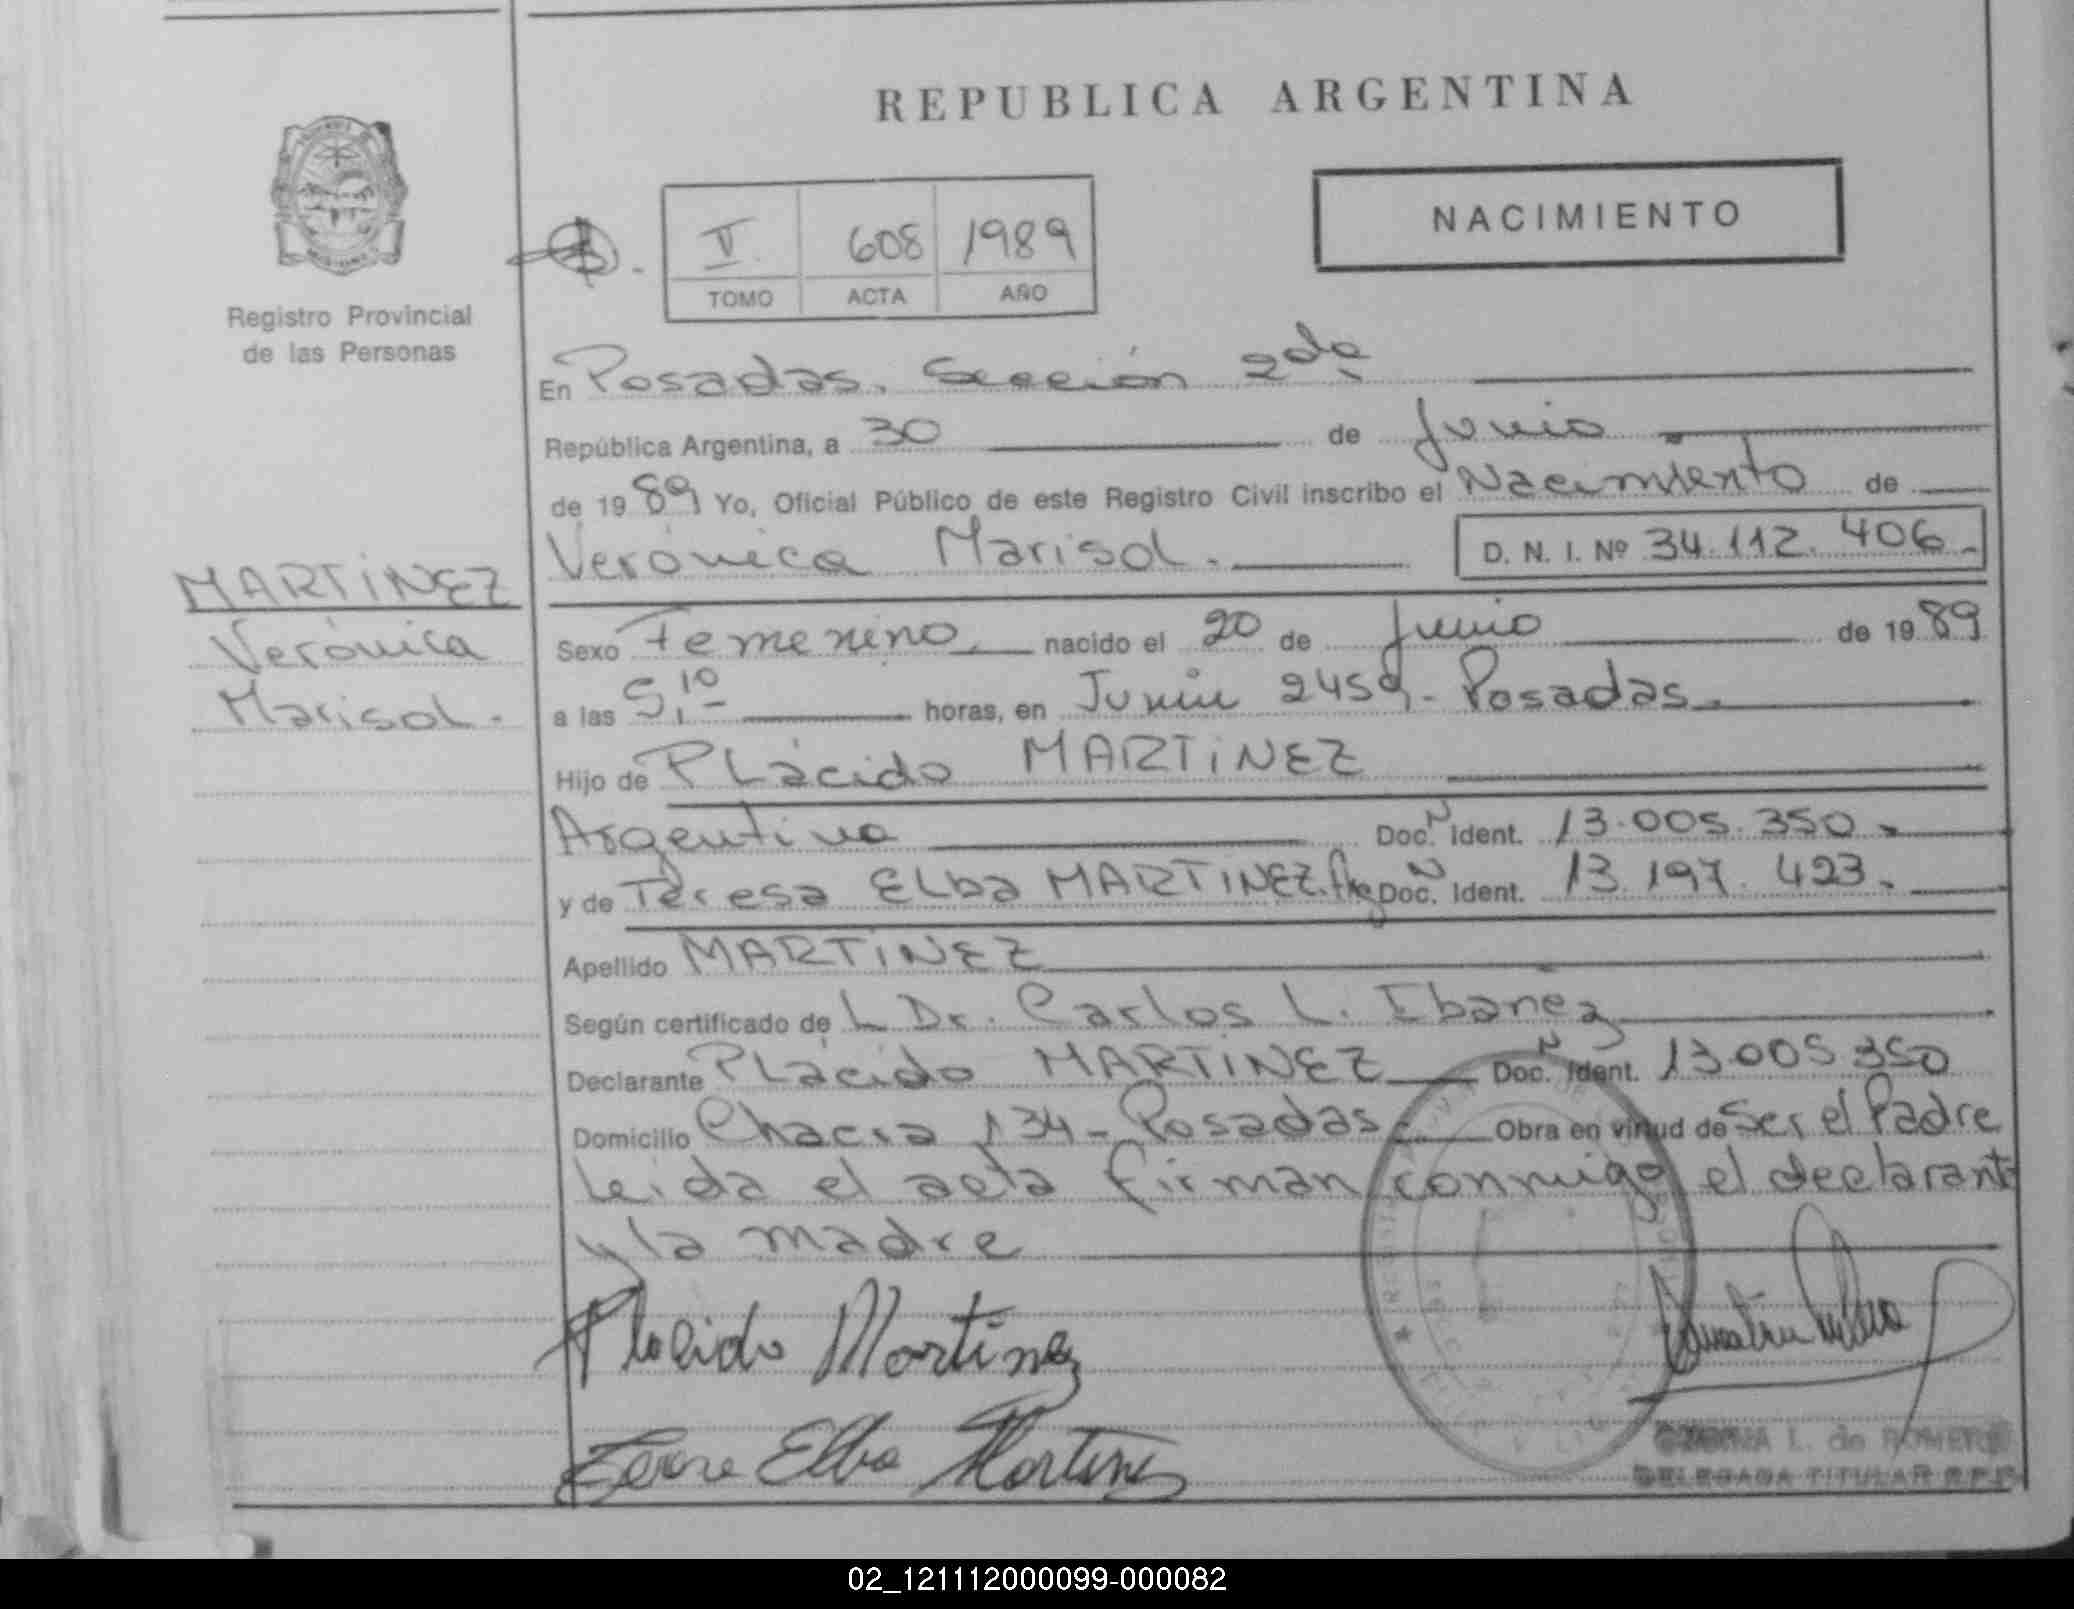 REPUBLICA ARGENTINA
NACIMIENTO
V. 608 1989
TOMO ACTA AÑO
Registro Provincial
de las Personas
En Posadas. Sección 2da
República Argentina, a 30 de Junio
de 1989 Yo, Oficial Público de este Registro Civil inscribo el Nacimiento de
Verónica Marisol. D. N. I. Nº 34.112.406.-
MARTINEZ
Verónica
Marisol.
Sexo Femenino. nacido el 20 de Junio de 1989
a las 5,10 horas, en Junin 2459- Posadas.
Hijo de Plácido MARTINEZ
Argentino Doc. N Ident. 13.005.350.
y de Teresa Elba MARTINEZ. Arg Doc. N Ident. 13.197.423.
Apellido MARTINEZ
Según certificado de L Dr. Carlos L. Ibañez
Declarante Plácido MARTINEZ Doc. N Ident. 13.005.350
Domicilio Chacra 134- Posadas. Obra en virtud de Ser el Padre
Leida el acta firman conmigo el declarante
y la madre
Placido Martinez
Elba Martinez
L. de ROMERO
DELEGADA TITULAR R.P.P.
02_121112000099-000082